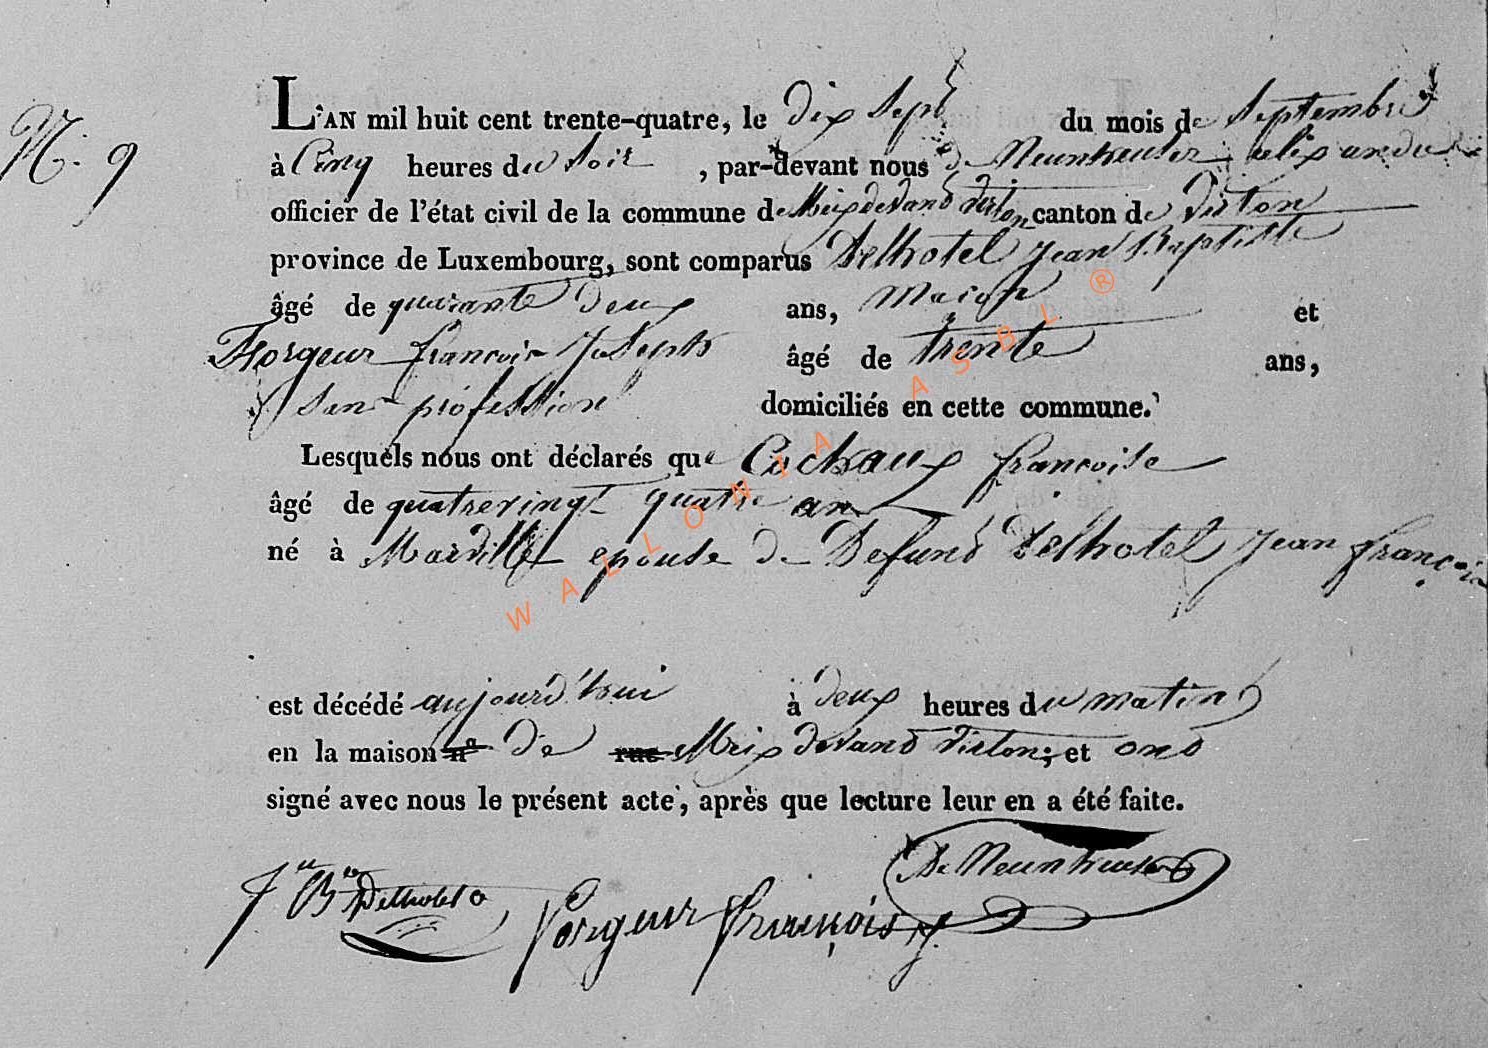 N. 9
L'AN mil huit cent trente-quatre, le dix sept du mois de Septembre
à Cinq heures du soir , par-devant nous de Neunheuser alexandre
officier de l'état civil de la commune de Meix devand virton canton de virton
province de Luxembourg, sont comparus Delhotel Jean Baptiste
âgé de quarante deux ans, maçon et
Forgeur françois Joseph âgé de trente ans,
sans profession domiciliés en cette commune.
Lesquels nous ont déclarés que Cochaux françoise
âgé de quatrevingt quatre an
né à Marville epouse de Defund Delhotel Jean françois
est décédé aujourd'hui à deux heures du matin
en la maison n° de rue Meix devand virton; et ond
signé avec nous le présent acte, après que lecture leur en a été faite.
De Neunheuser
J Bte Delhotel
forgeur françois J.
WALLONIA ASBL ®